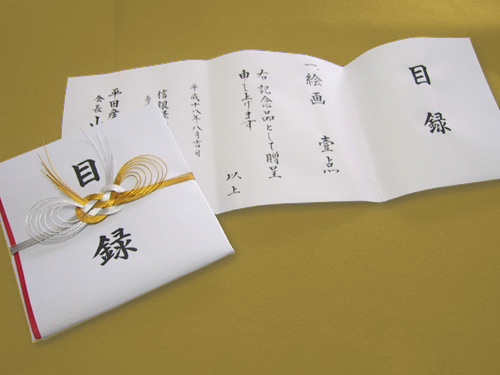 目録
一、絵画 壹点
右記念品として贈呈
申し上げます
以上
平成十八年八月吉日
信
平田産
会長
目録